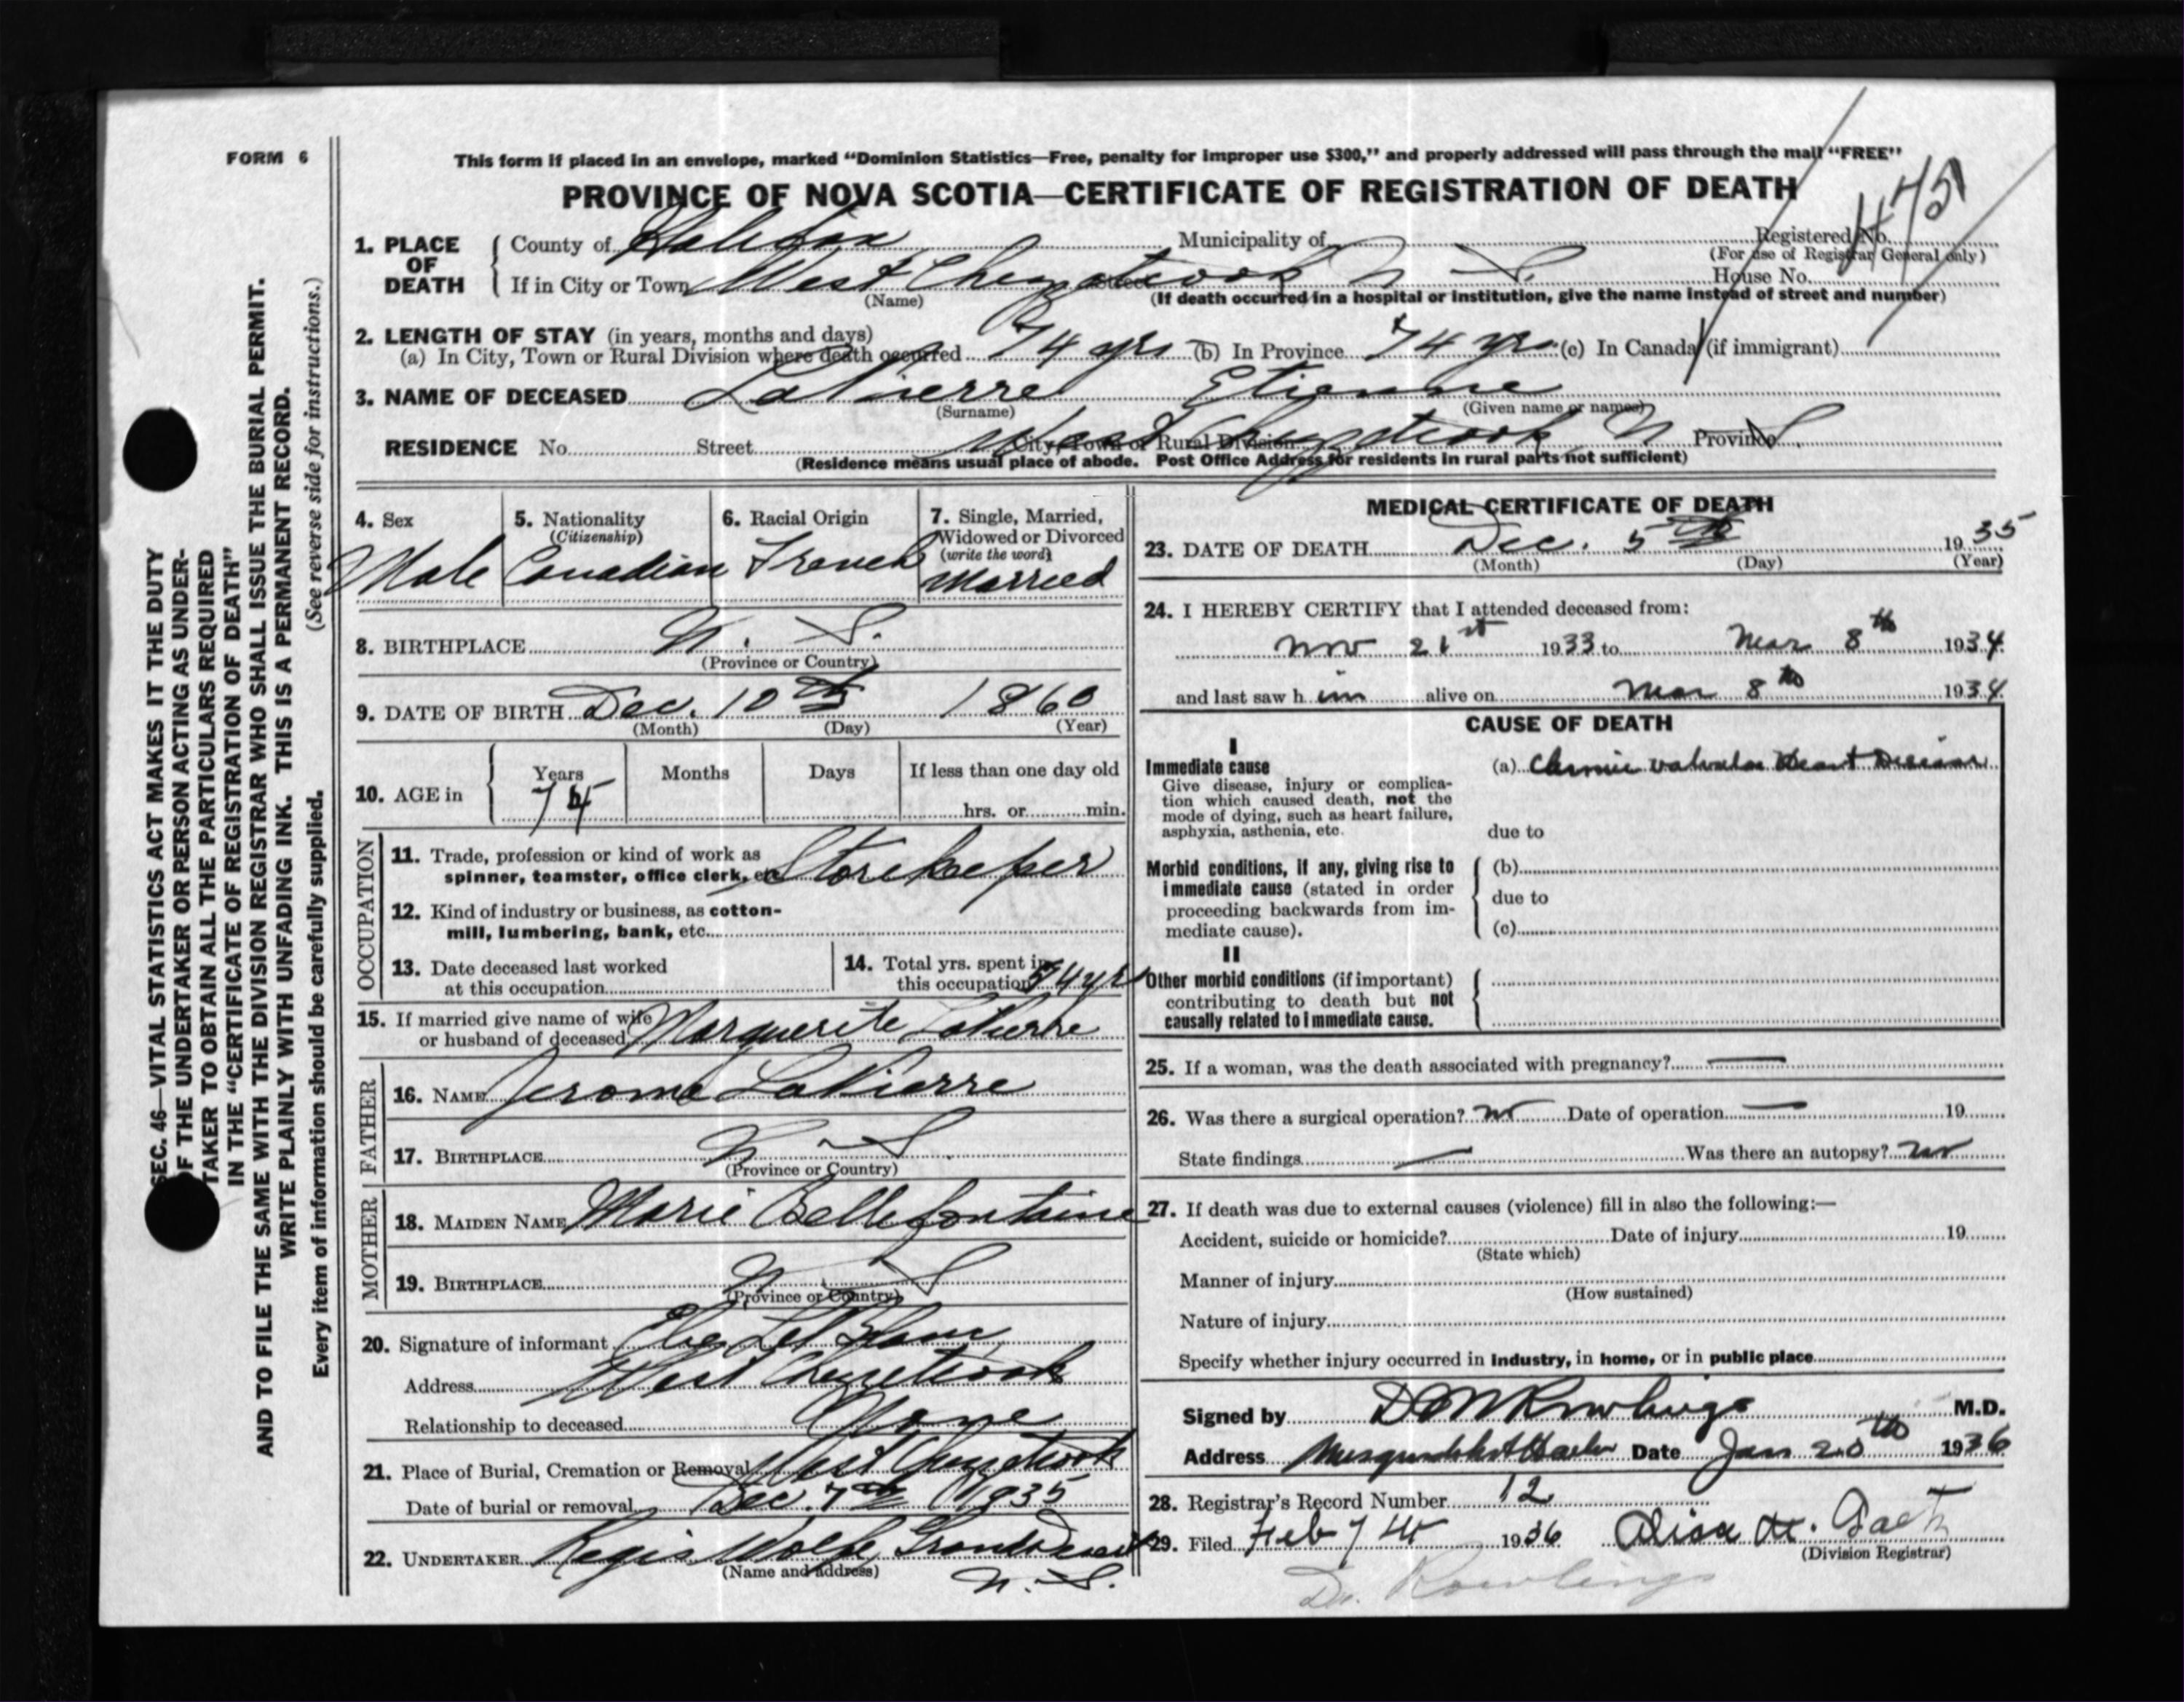 FORM 6
This form if placed in an envelope, marked "Dominion Statistics—Free, penalty for improper use $300," and properly addressed will pass through the mail "FREE"
PROVINCE OF NOVA SCOTIA—CERTIFICATE OF REGISTRATION OF DEATH
1. PLACE OF DEATH
County of Halifax Municipality of Registered No.
(For use of Registrar General only)
If in City or Town West Chezzetcook N S. House No.
(Name) (If death occurred in a hospital or institution, give the name instead of street and number)
2. LENGTH OF STAY (in years, months and days)
(a) In City, Town or Rural Division where death occurred 74 yrs (b) In Province 74 yrs (c) In Canada (if immigrant)
3. NAME OF DECEASED LaPierre Etienne
(Surname) (Given name or names)
RESIDENCE No. Street West Chezzetcook N S. City, Town or Rural Division Province
(Residence means usual place of abode. Post Office Address for residents in rural parts not sufficient)
4. Sex 5. Nationality (Citizenship) 6. Racial Origin 7. Single, Married, Widowed or Divorced (write the word)
Male Canadian French Married
8. BIRTHPLACE N. S.
(Province or Country)
9. DATE OF BIRTH Dec. 10th 1860
(Month) (Day) (Year)
10. AGE in Years Months Days If less than one day old
74 hrs. or min.
OCCUPATION
11. Trade, profession or kind of work as
spinner, teamster, office clerk, etc. Storekeeper
12. Kind of industry or business, as cotton-
mill, lumbering, bank, etc.
13. Date deceased last worked
at this occupation
14. Total yrs. spent in
this occupation 54 yrs
15. If married give name of wife
or husband of deceased Marguerite LaPierre
FATHER
16. NAME Jerome LaPierre
17. BIRTHPLACE N. S.
(Province or Country)
MOTHER
18. MAIDEN NAME Marie Bellefontaine
19. BIRTHPLACE N. S
(Province or Country)
20. Signature of informant LeBlanc
Address West Chezzetcook
Relationship to deceased None
21. Place of Burial, Cremation or Removal West Chezzetcook
Date of burial or removal Dec. 7th 1935
22. UNDERTAKER Regis Wolfe, Grand Desert
(Name and address) N. S.
MEDICAL CERTIFICATE OF DEATH
23. DATE OF DEATH Dec. 5th 1935
(Month) (Day) (Year)
24. I HEREBY CERTIFY that I attended deceased from:
Nov 21st 1933 to Mar 8th 1934
and last saw him alive on Mar 8th 1934
CAUSE OF DEATH
I
Immediate cause
Give disease, injury or complica-
tion which caused death, not the
mode of dying, such as heart failure,
asphyxia, asthenia, etc.
(a) Chronic valvular Heart Disease
due to
Morbid conditions, if any, giving rise to
immediate cause (stated in order
proceeding backwards from im-
mediate cause).
(b)
due to
(c)
II
Other morbid conditions (if important)
contributing to death but not
causally related to immediate cause.
25. If a woman, was the death associated with pregnancy? —
26. Was there a surgical operation? no Date of operation — 19
State findings — Was there an autopsy? no
27. If death was due to external causes (violence) fill in also the following:—
Accident, suicide or homicide? Date of injury 19
(State which)
Manner of injury
(How sustained)
Nature of injury
Specify whether injury occurred in industry, in home, or in public place
Signed by Rowlings M.D.
Address Musquodoboit Harbor Date Jan 20th 1936
28. Registrar's Record Number 12
29. Filed Feb 7th 1936 H. Gaetz
(Division Registrar)
Dr. Rowlings
SEC. 46—VITAL STATISTICS ACT MAKES IT THE DUTY
OF THE UNDERTAKER OR PERSON ACTING AS UNDER-
TAKER TO OBTAIN ALL THE PARTICULARS REQUIRED
IN THE "CERTIFICATE OF REGISTRATION OF DEATH"
AND TO FILE THE SAME WITH THE DIVISION REGISTRAR WHO SHALL ISSUE THE BURIAL PERMIT.
WRITE PLAINLY WITH UNFADING INK. THIS IS A PERMANENT RECORD.
Every item of information should be carefully supplied. (See reverse side for instructions.)